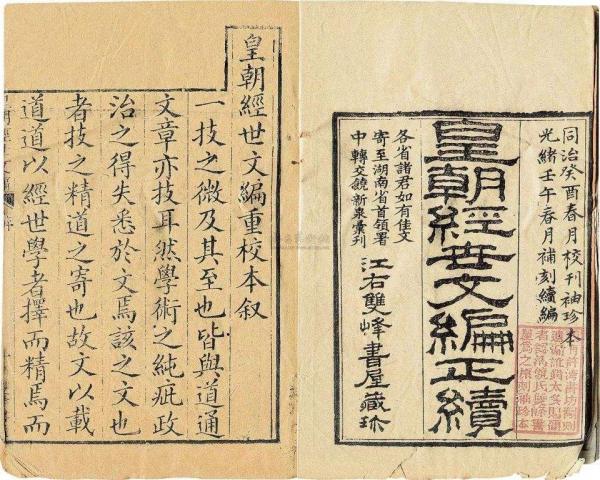 同治癸酉春月校刊袖珍本
光緒壬午春月補刻續編
皇朝經世文編正續
江右雙峰書屋藏珎
各省諸君如有佳文
寄至湖南省首領署
中轉交饒新泉彙刊
皇朝經世文編重校本叙
一技之微及其至也皆與道通
文章亦技耳然學術之純疵政
治之得失悉於文焉該之文也
者技之精道之寄也故文以載
道道以經世學者擇而精焉而